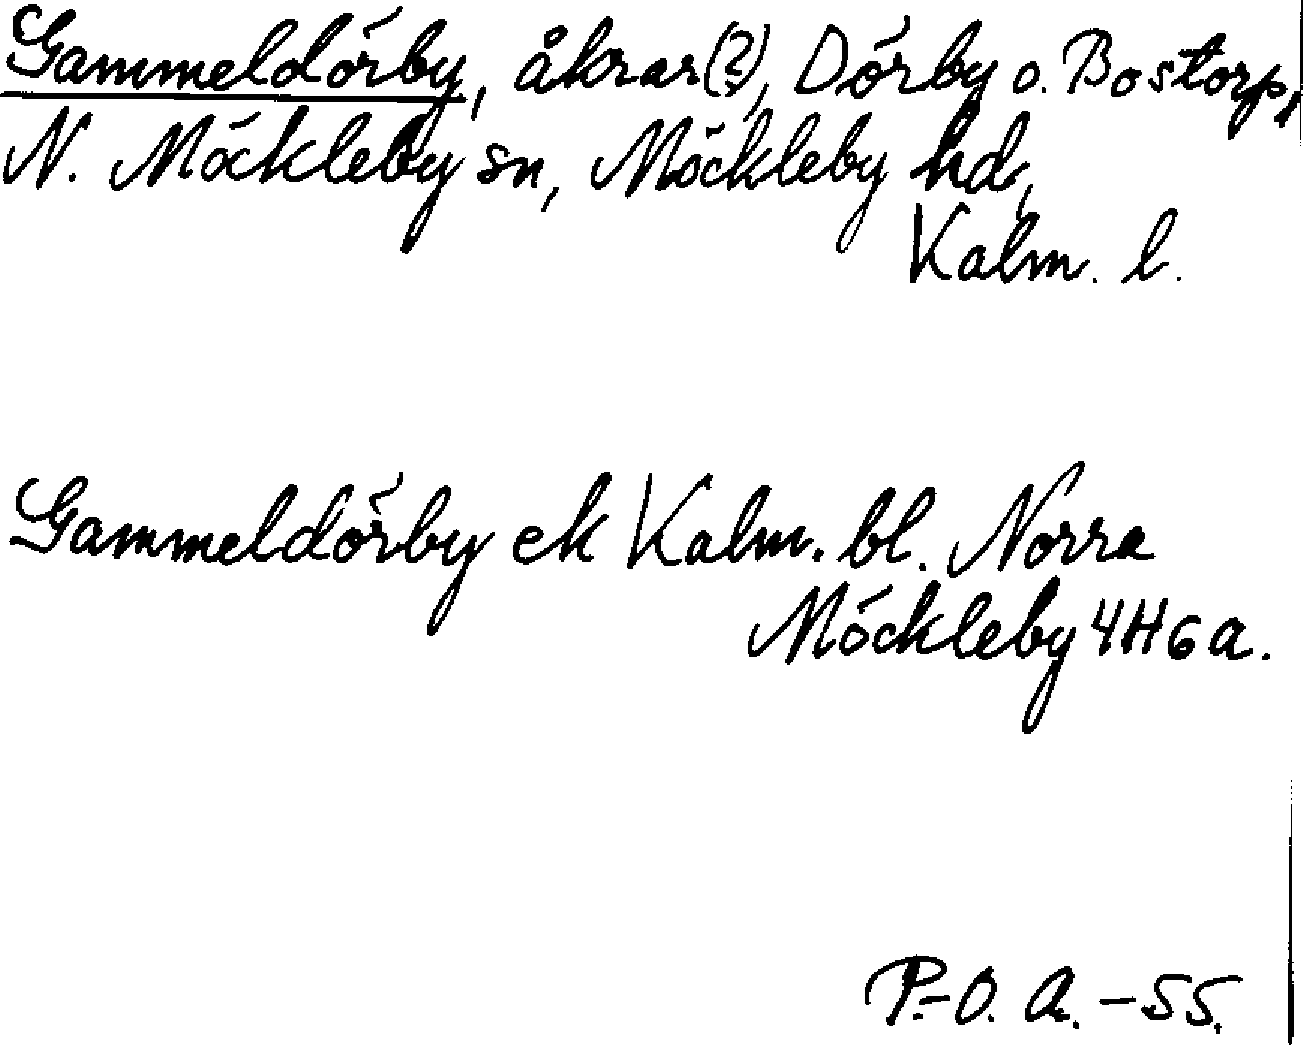 Gammeldörby, åkrar(?), Dörby o. Bostorp,
N. Möckleby sn, Möckleby hd,
Kalm. l.
Gammeldörby ek Kalm. bl. Norra
Möckleby 4H6a.
P.-O. A. -55.